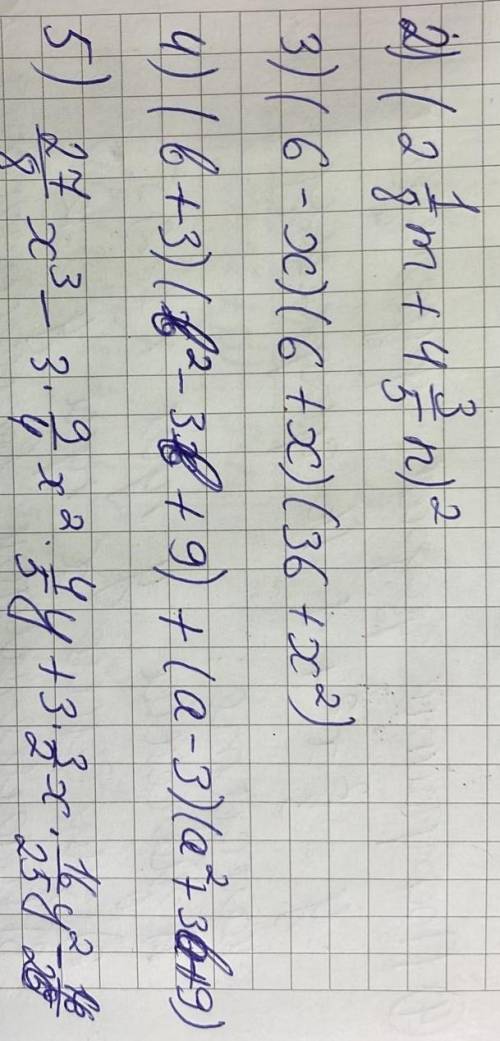 2) (2 1/8 m + 4 3/5 n)²
3) (6 - x)(6 + x)(36 + x²)
4) (b + 3)(b² - 3b + 9) + (a - 3)(a² + 3a + 9)
5) 27/8 x³ - 3 · 9/4 x² · 4/5 y + 3 · 3/2 x · 16/25 y² -